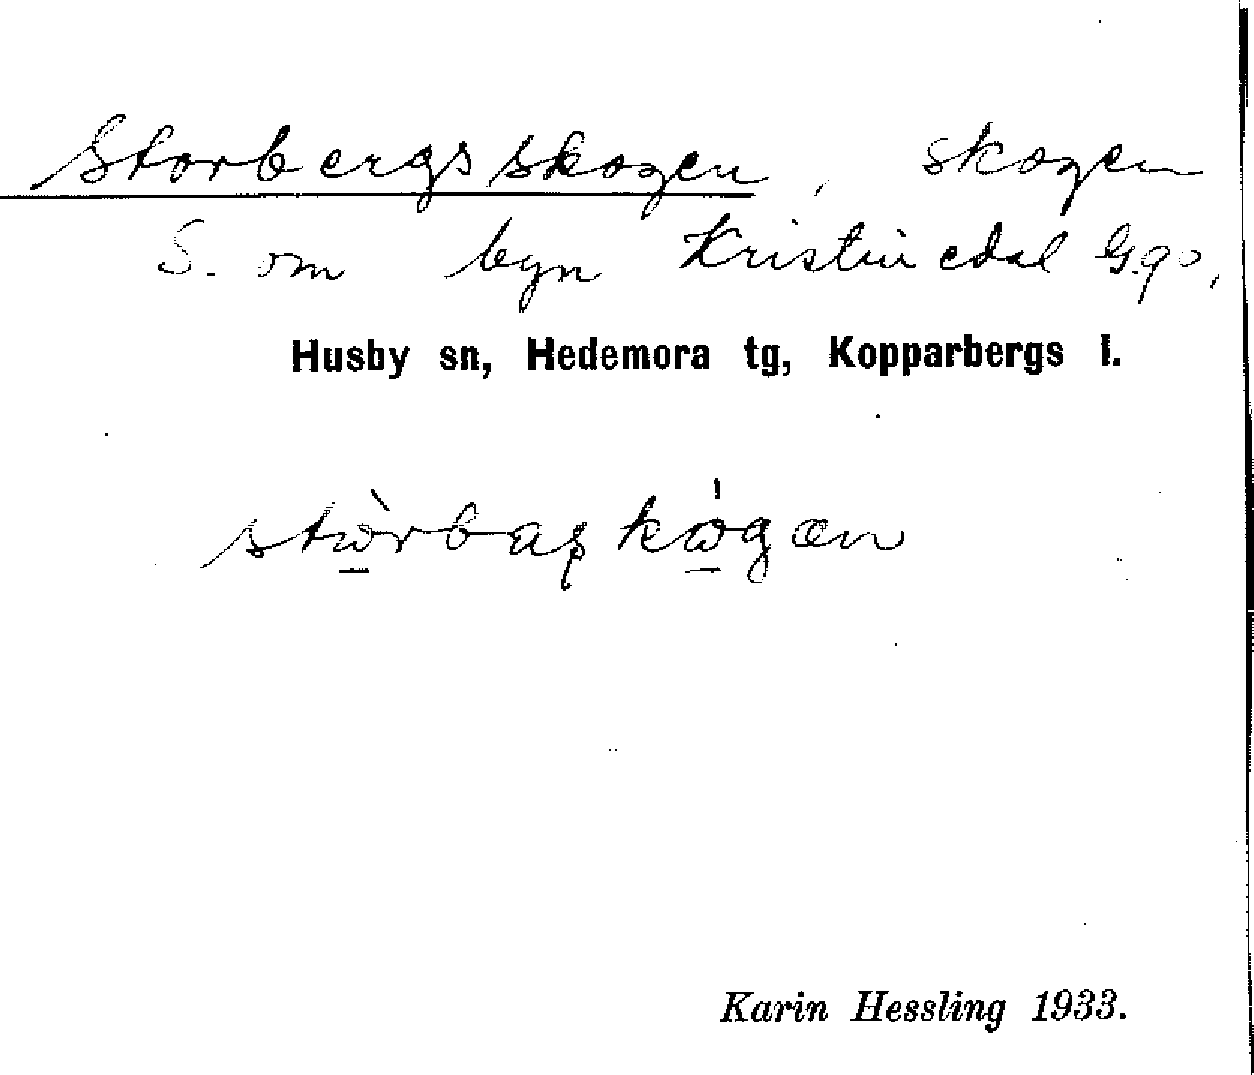 Storbergsskogen, skogen
S. om byn Kristinedal G.go,
Husby sn, Hedemora tg, Kopparbergs l.
Karin Hessling 1933.